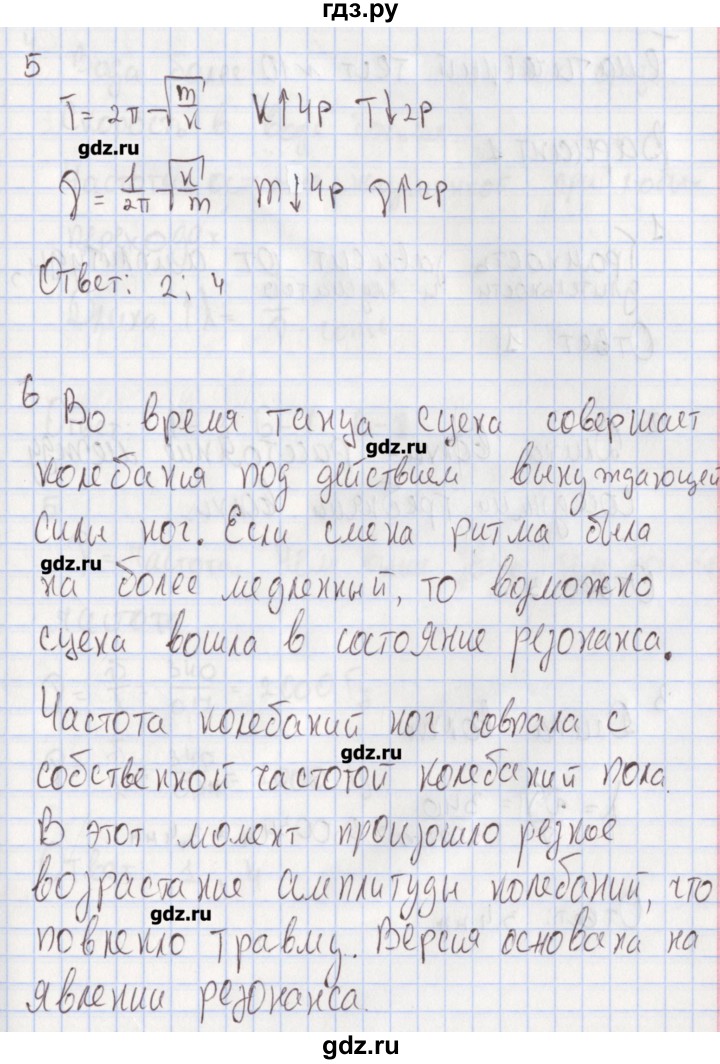 гдз.ру
5
T = 2π √m/k k↑4р T↓2р
gdz.ru
ν = 1/2π √k/m m↓4р ν↑2р
Ответ: 2; 4
6
Во время танца сцена совершает
gdz.ru
колебания под действием вынуждающей
силы ног. Если смена ритма была
gdz.ru
на более медленный, то возможно
сцена вошла в состояние резонанса.
Частота колебаний ног совпала с
gdz.ru
собственной частотой колебаний пола.
В этот момент произошло резкое
возрастание амплитуды колебаний, что
gdz.ru
повлекло травму. Версия основана на
явлении резонанса.
gdz.ru